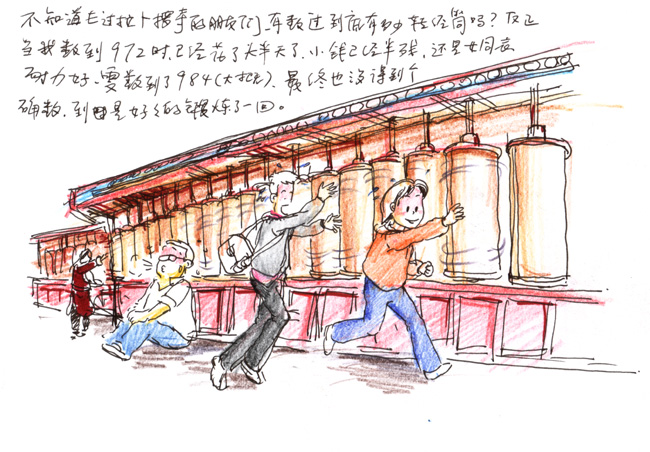 不知道去过拉卜楞寺的朋友们,有数过到底有多少转经筒吗?反正
当我数到972时,已经花了大半天了,小钱已经半残,还是女同志
耐力好,雯数到了984(大概),最终也没得到个
确数,到是好好的锻炼了一回。